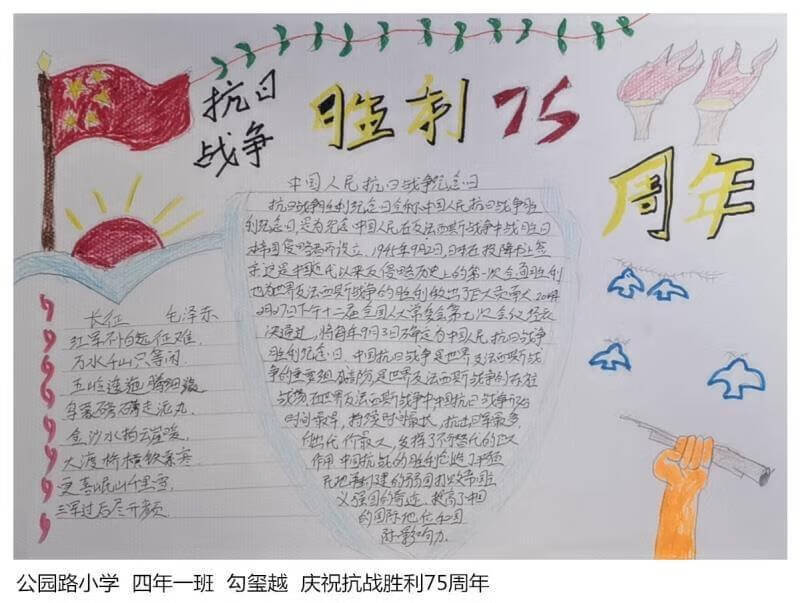 抗日
战争
胜利75
周年
中国人民抗日战争纪念日
抗日战争胜利纪念日全称中国人民抗日战争胜
利纪念日,是为纪念中国人民在反法西斯战争中战胜日
本帝国侵略者而设立,1945年9月2日,日本在投降书上签
字,这是中国近代以来反侵略历史上的第一次全面胜利
也为世界反法西斯战争的胜利做出了巨大贡献
2月27日下午十二届全国人大常委会第七次会议经表
决通过,将每年9月3日确定为中国人民抗日战争
胜利纪念日。中国抗日战争是世界反法西斯战
争的重要组成部分,是世界反法西斯战争的
战场,在世界反法西斯战争中中国抗日战争
时间最早,持续时间最长,抗击日军最多,
付出代价最大,发挥了不可替代的巨大
作用,中国抗战的胜利
强国的奇迹,提高了中国
的国际地位和国
际影响力。
长征 毛泽东
红军不怕远征难,
万水千山只等闲。
五岭逶迤腾细浪
乌蒙磅礴走泥丸。
金沙水拍云崖暖,
大渡桥横铁索寒
更喜岷山千里雪,
三军过后尽开颜。
公园路小学 四年一班 勾玺越 庆祝抗战胜利75周年